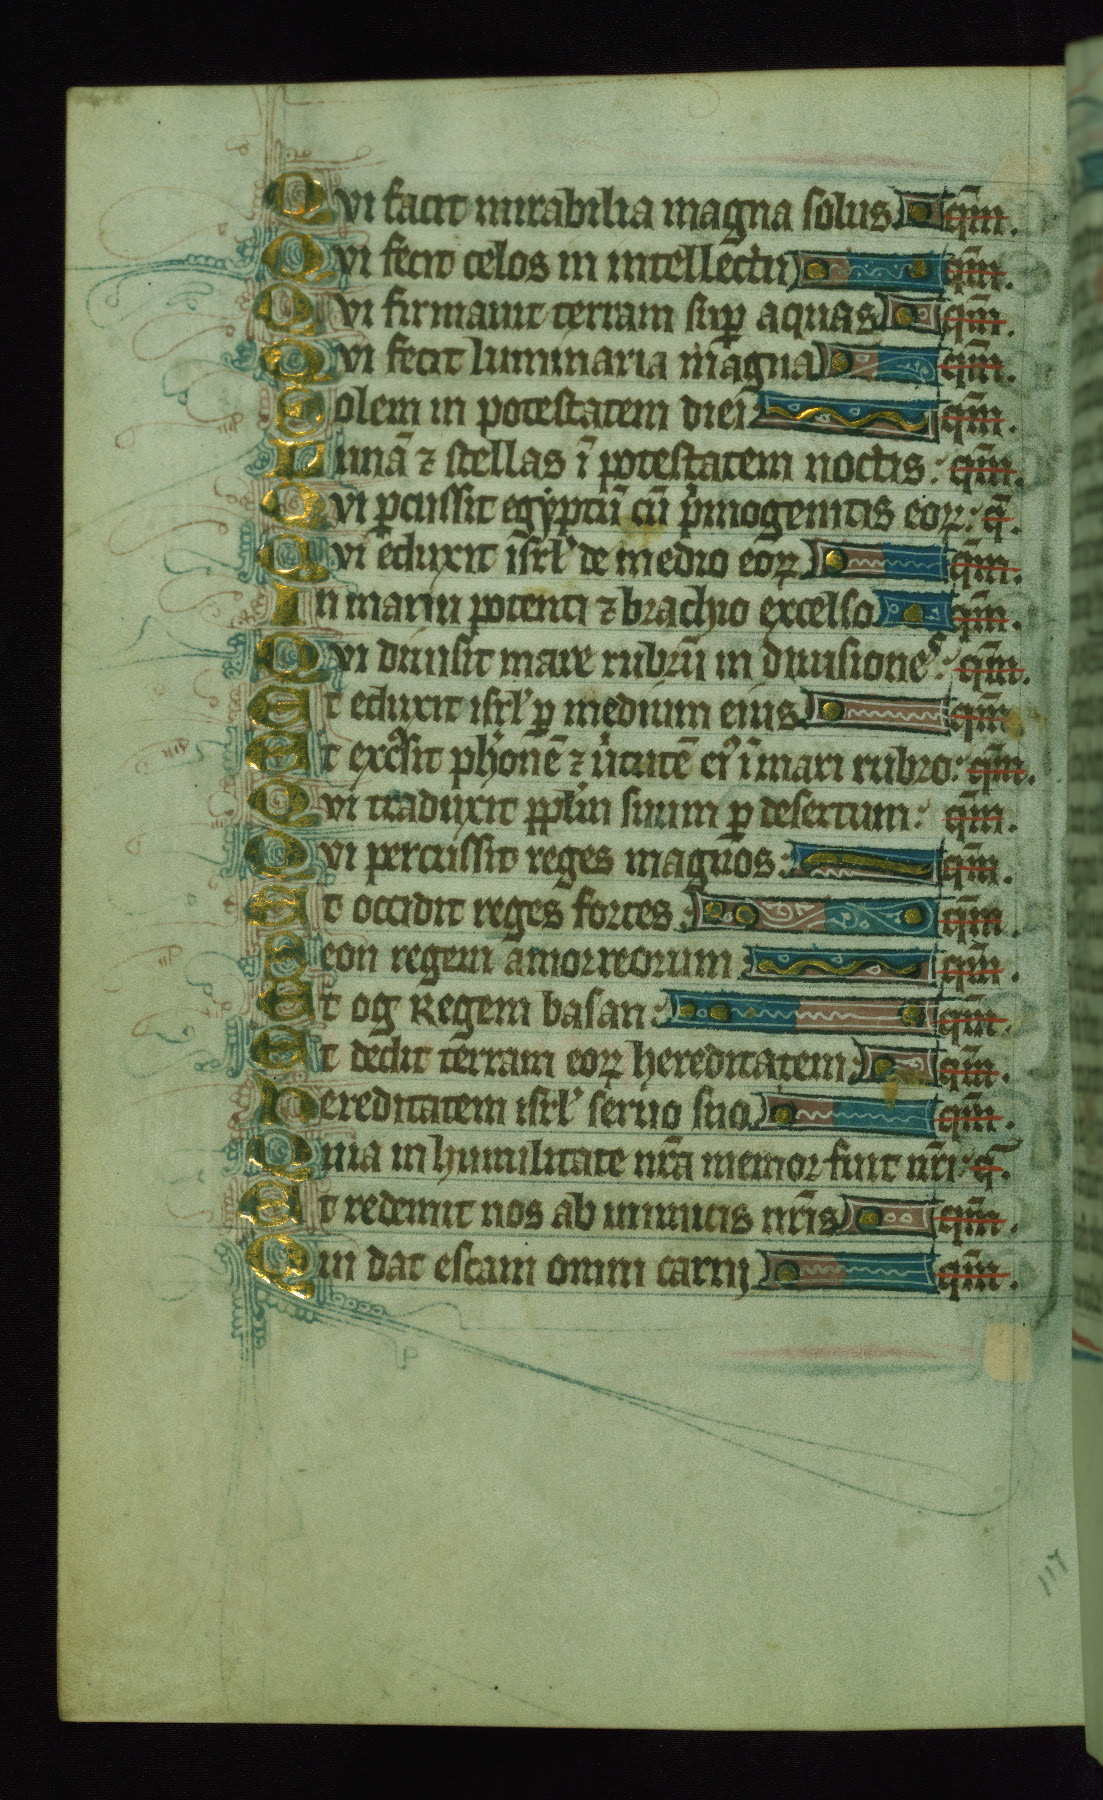 Qvi facit mirabilia magna solus qm̄.
Qvi fecit celos in intellectu qm̄.
Qvi firmauit terram sup̱ aquas qm̄.
Qvi fecit luminaria magna qm̄.
Solem in potestatem diei qm̄.
Lunā ⁊ stellas ī potestatem noctis: qm̄.
Qvi ꝑcussit egyptū cū pͥmogenitis eoꝝ: q̄.
Qvi eduxit isrl̛ de medio eoꝝ qm̄.
In manu potenti ⁊ brachio excelso qm̄.
Qvi diuisit mare rubrū in diuisiones: qm̄.
Et eduxit isrl̛ ꝑ medium eius qm̄
Et excͧsit phͣonē ⁊ uͥtutē eiꝰ ī mari rubro: qm̄.
Qvi traduxit ppl̄m suum ꝑ desertum: qm̄.
Qvi percussit reges magnos: qm̄.
Et occidit reges fortes: qm̄.
Seon regem amorreorum qm̄.
Et og Regem basan: qm̄.
Et dedit terram eoꝝ hereditatem: qm̄.
Hereditatem isrl̛ seruo suo qm̄.
Quia in humilitate nr̄a memor fuit nr̄i: q̄.
Et redemit nos ab inimicis nr̄is qm̄.
Qui dat escam omni carnj qm̄.
117